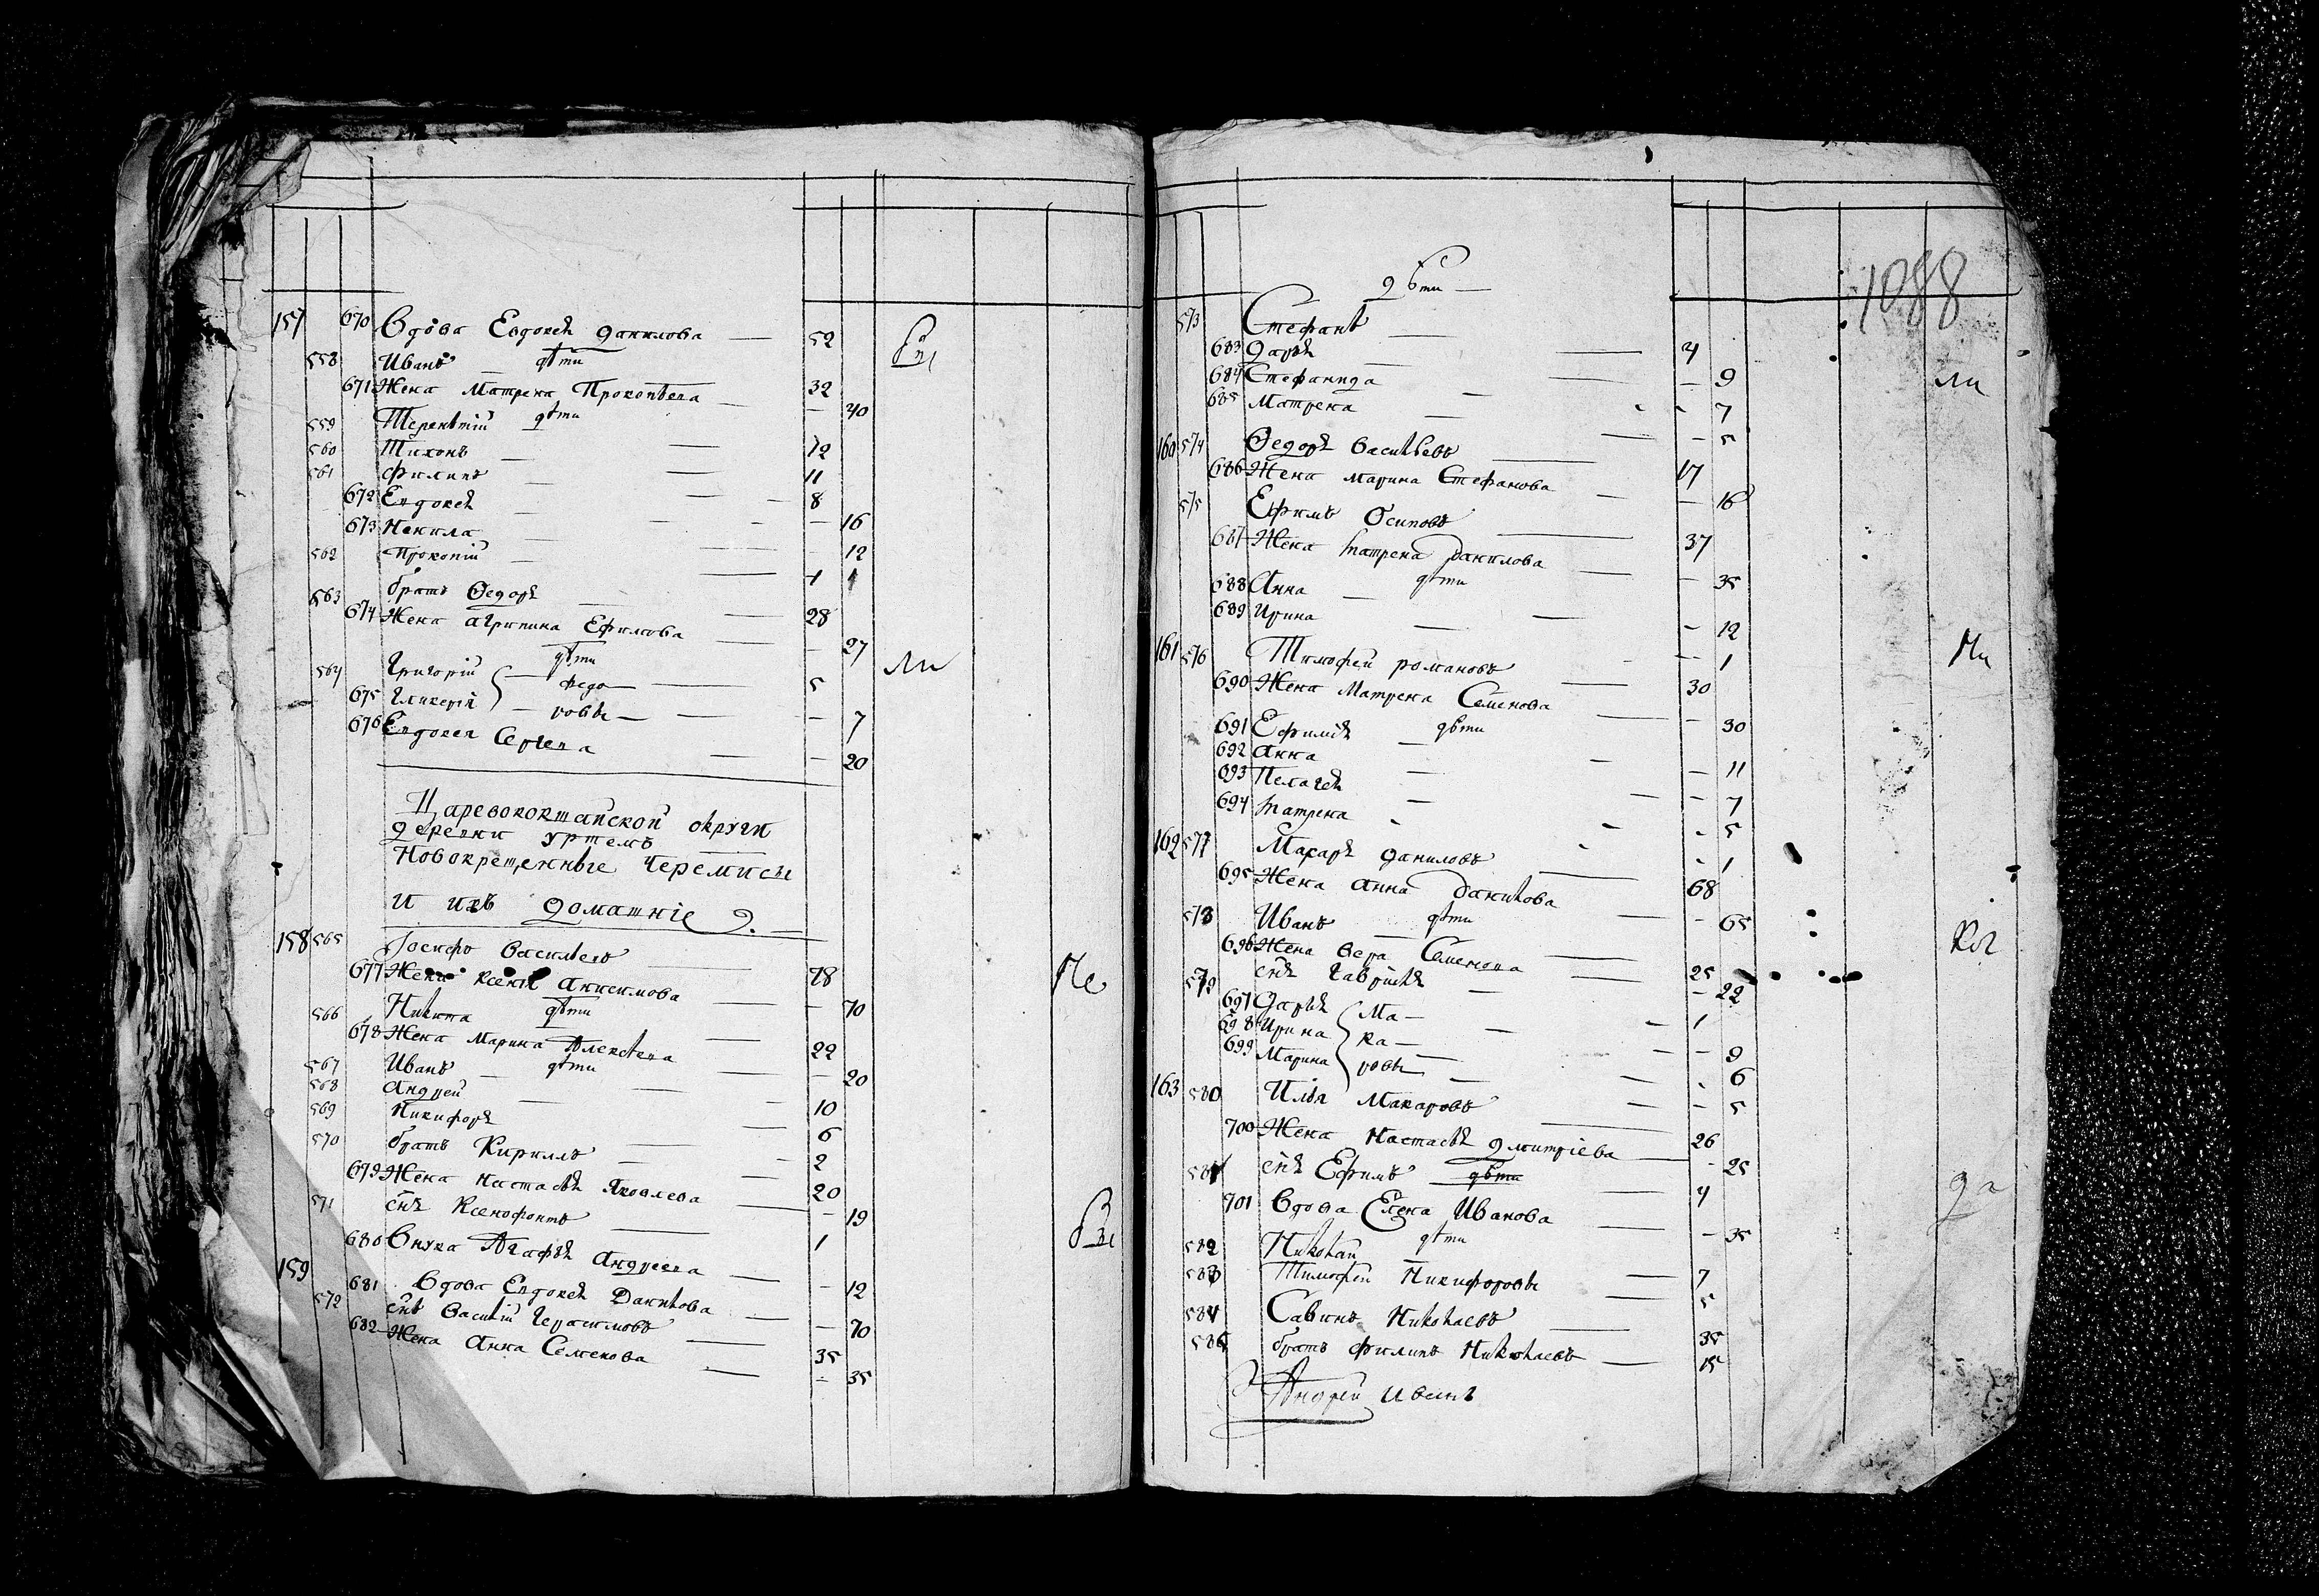 157 670 Вдова Евдокея Данилова — 52
дѣти
558 Иванъ — 32
671 Жена Матрена Прокопьева — 40
дѣти
559 Терентий — 12
560 Тихонъ — 11
561 Филипъ — 8
672 Евдокея — 16
673 Ненила — 12
562 Прокопий — 1
563 братъ Ѳедоръ — 28
674 Жена Агрипина Ефимова — 27
дѣти
ли
564 Григорий — Федо — 5
675 Гликерия — ровы — 7
676 Евдокея Сергеева — 20
Царевококшайской округи
деревни Уртемъ
Новокрещенные Черемисы
и ихъ домашние
158 565 Иосифъ Васильевъ — 78
677 Жена Ксения Анисимова — 70
Не
дѣти
566 Никита — 22
678 Жена Марина Алексеева — 20
дѣти
567 Иванъ — 10
568 Андрей — 6
569 Никифоръ — 2
570 братъ Кирилъ — 20
679 Жена Настасья Яковлева — 19
571 снъ Ксенофонтъ — 1
680 Внука Агафья Андреева — 12
159 681 Вдова Евдокея Данилова — 70
572 снъ Василий Герасимовъ — 35
682 Жена Анна Семенова — 35
1088
дѣти —
573 Стефанъ — 4
683 Дарья — 9
ли
684 Стефанида — 7
685 Матрена — 5
160 574 Ѳедоръ Васильевъ — 17
686 Жена Марина Стефанова — 16
575 Ефимъ Осиповъ — 37
687 Жена Матрена Данилова — 35
дѣти
688 Анна — 12
689 Ирина — 1
161 576 Тимофей Романовъ — 30
690 Жена Матрена Семенова — 30
дѣти
691 Ефимья — 11
692 Анна — 7
693 Пелагея — 5
694 Матрена — 1
162 577 Макаръ Даниловъ — 68
695 Жена Анна Данилова — 65
дѣти
578 Иванъ — 25
696 Жена Вера Семенова — 22
579 снъ Гаврила — 1
697 Дарья Ма — 9
698 Ирина ка — 6
699 Марина ровы — 5
163 580 Илья Макаровъ — 26
700 Жена Настасья Дмитриева — 25
581 снъ Ефимъ дѣти — 4
да
701 Вдова Елена Иванова — 35
дѣти
582 Николай — 7
583 Тимофей Никифоровы — 5
584 Савинъ Николаевъ — 35
585 братъ Филипъ Николаевъ — 15
Андрей Иванъ